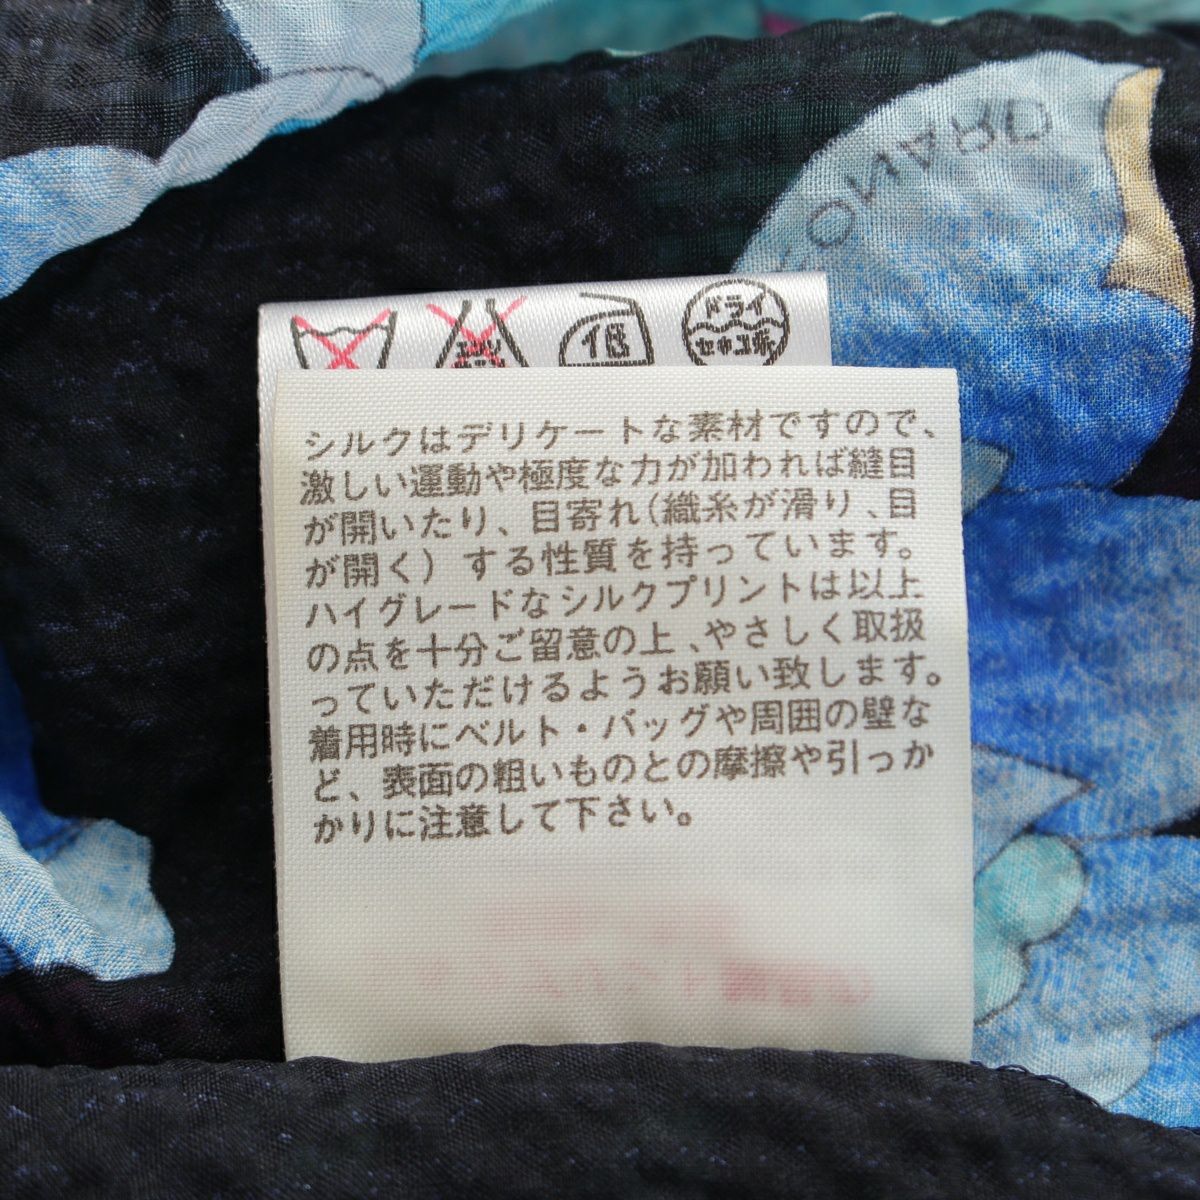 エンソ
ドライ
セキユ系
シルクはデリケートな素材ですので、
激しい運動や極度な力が加われば縫目
が開いたり、目寄れ(織糸が滑り、目
が開く) する性質を持っています。
ハイグレードなシルクプリントは以上
の点を十分ご留意の上、やさしく取扱
っていただけるようお願い致します。
着用時にベルト・バッグや周囲の壁な
ど、表面の粗いものとの摩擦や引っか
かりに注意して下さい。